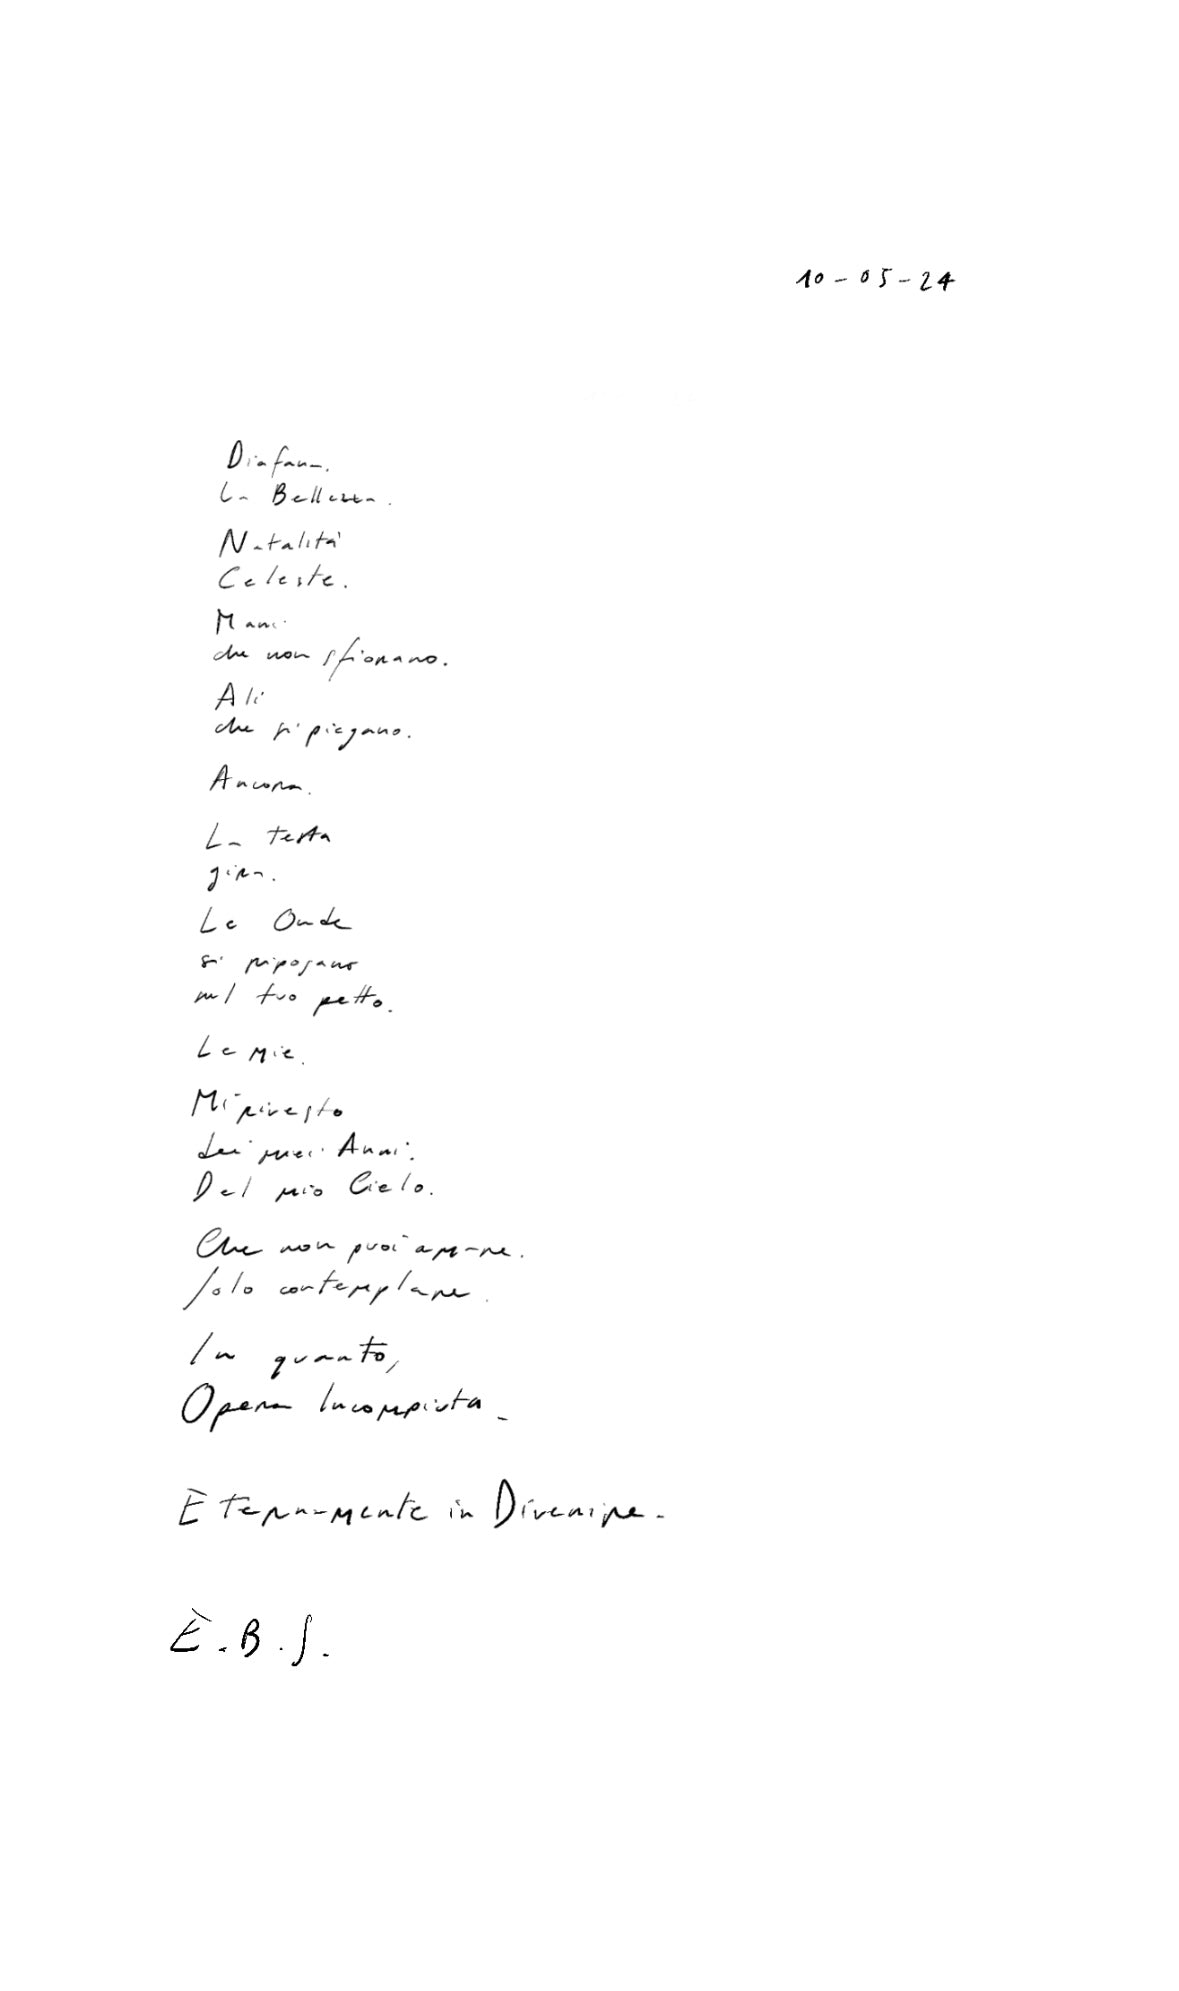 10-05-24
Diafana.
La Bellezza.
Natalità
Celeste.
Mani
che non sfiorano.
Ali
che si piegano.
Ancora.
La testa
gira.
Le Onde
si riposano
nel tuo petto.
Le mie.
Mi rivesto
dei miei Anni.
Del mio Cielo.
Che non puoi amare.
Solo contemplare.
In quanto,
Opera Incompiuta.
Eternamente in Divenire.
È.B.S.